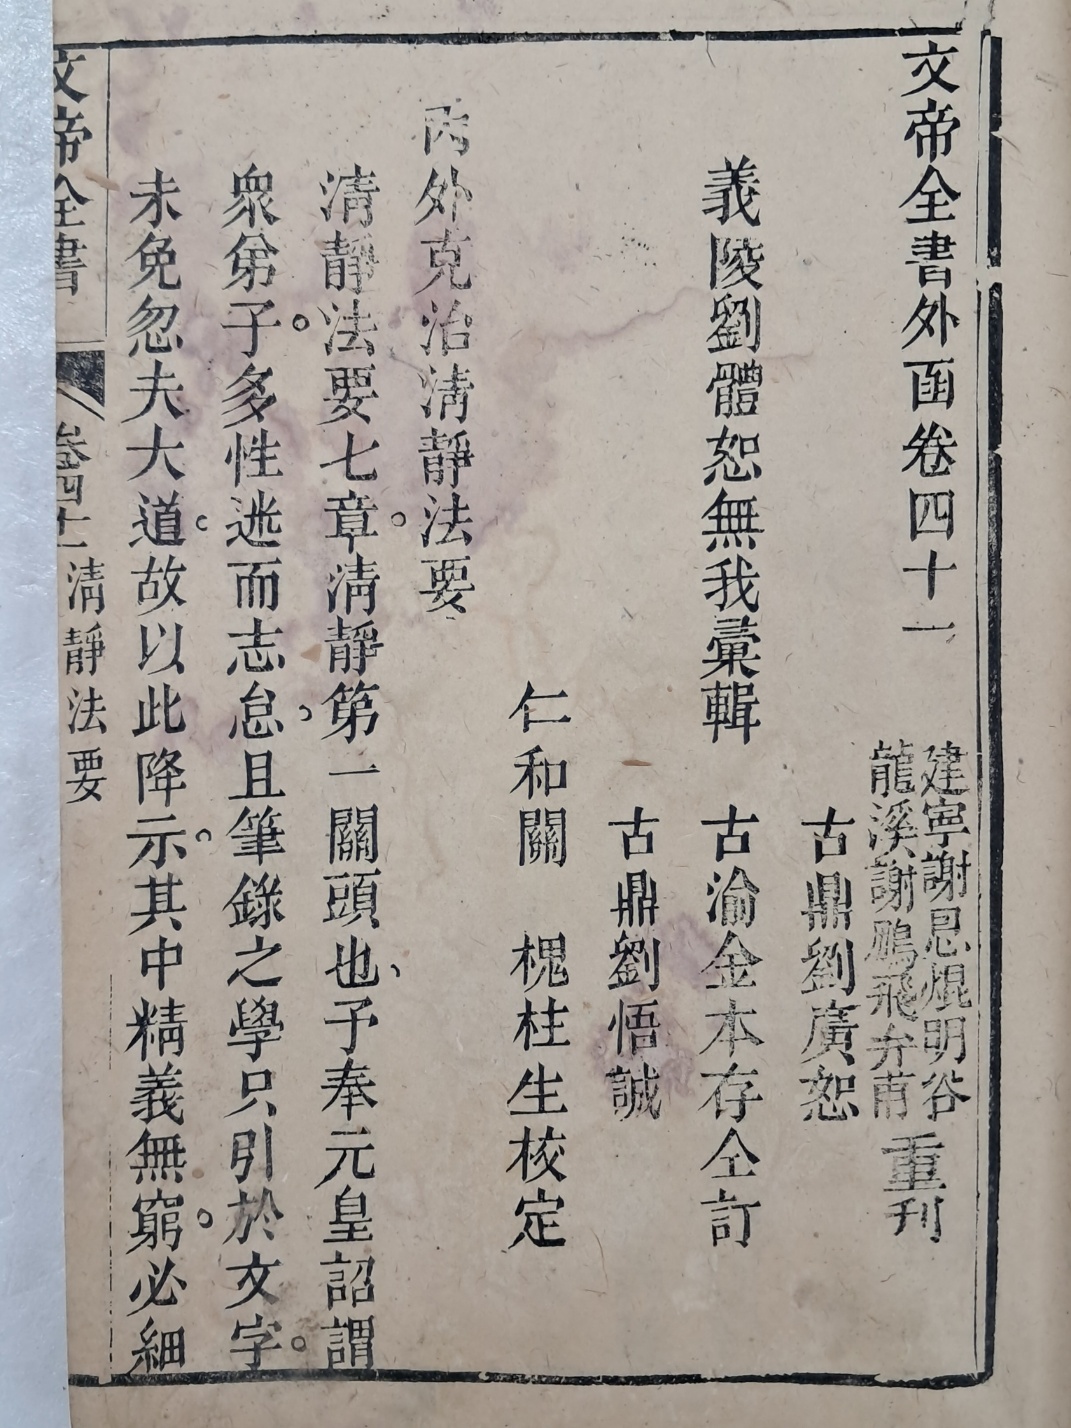 文帝全書外函卷四十一
建寧謝恩焜明谷
龍溪謝鵬飛弁莆
重刊
古鼎劉廣恕
義陵劉體恕無我彙輯
古渝金本存仝訂
古鼎劉悟誠
仁和關 槐柱生校定
內外克治清靜法要
清靜法要七章。清靜第一關頭也、予奉元皇詔謂
衆弟子。多性迷而志怠、且筆錄之學只引於文字。
未免忽夫大道。故以此降示。其中精義無窮。必細
文帝全書 卷四十一 清靜法要